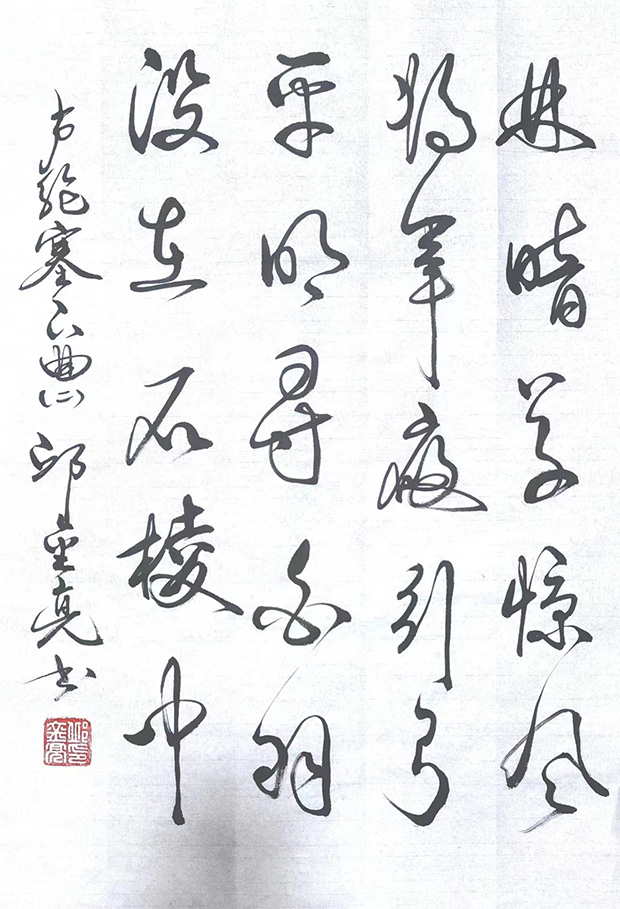 林暗草惊风
将军夜引弓
平明寻白羽
没在石棱中
卢纶塞下曲(二) 邱 亮书